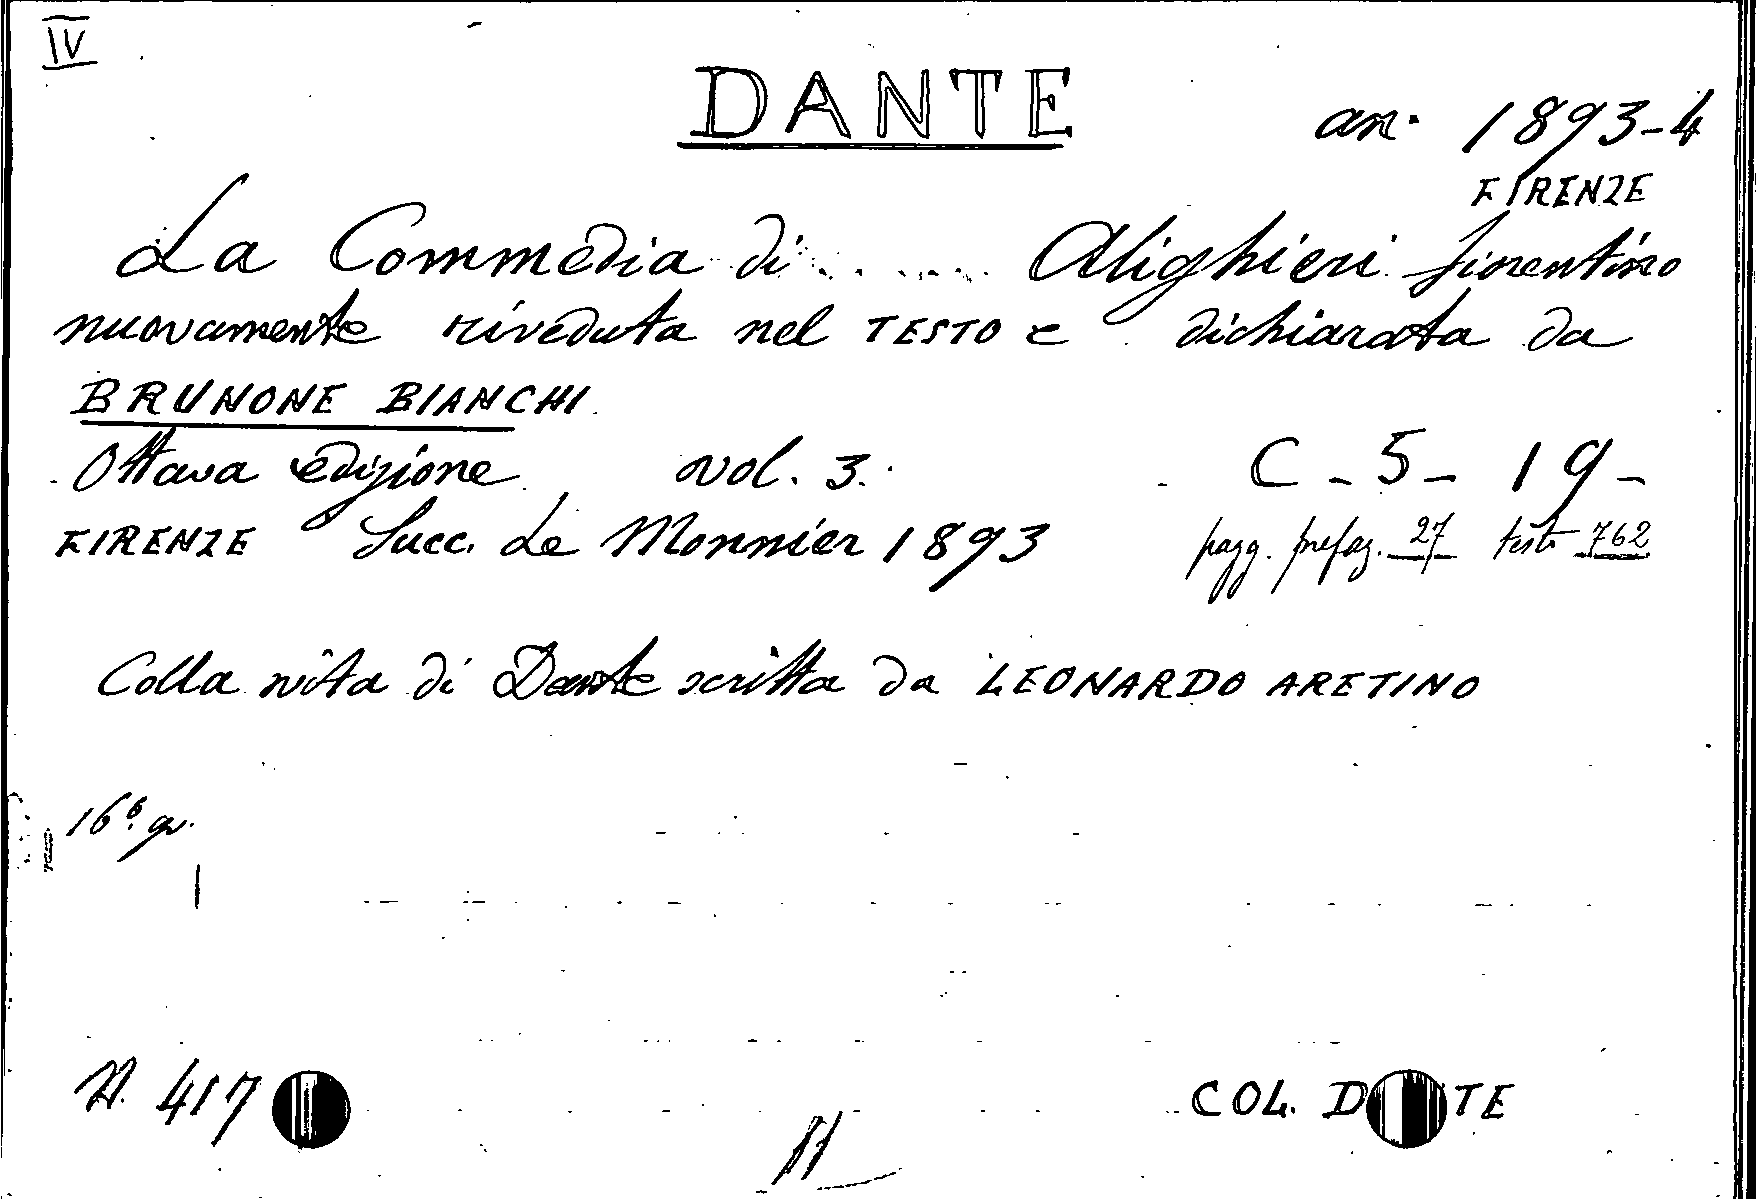 IV
DANTE
an. 1893-4
FIRENZE
La Commedia di . . ..... Alighieri fiorentino
nuovamente riveduta nel TESTO e dichiarata da
BRUNONE BIANCHI
Ottava edizione vol. 3. C - 5 - 19 -
FIRENZE Succ. Le Monnier 1893 pagg. prefaz. 27 testo 762
Colla vita di Dante scritta da LEONARDO ARETINO
16º. gr.
N. 417
COL. D TE